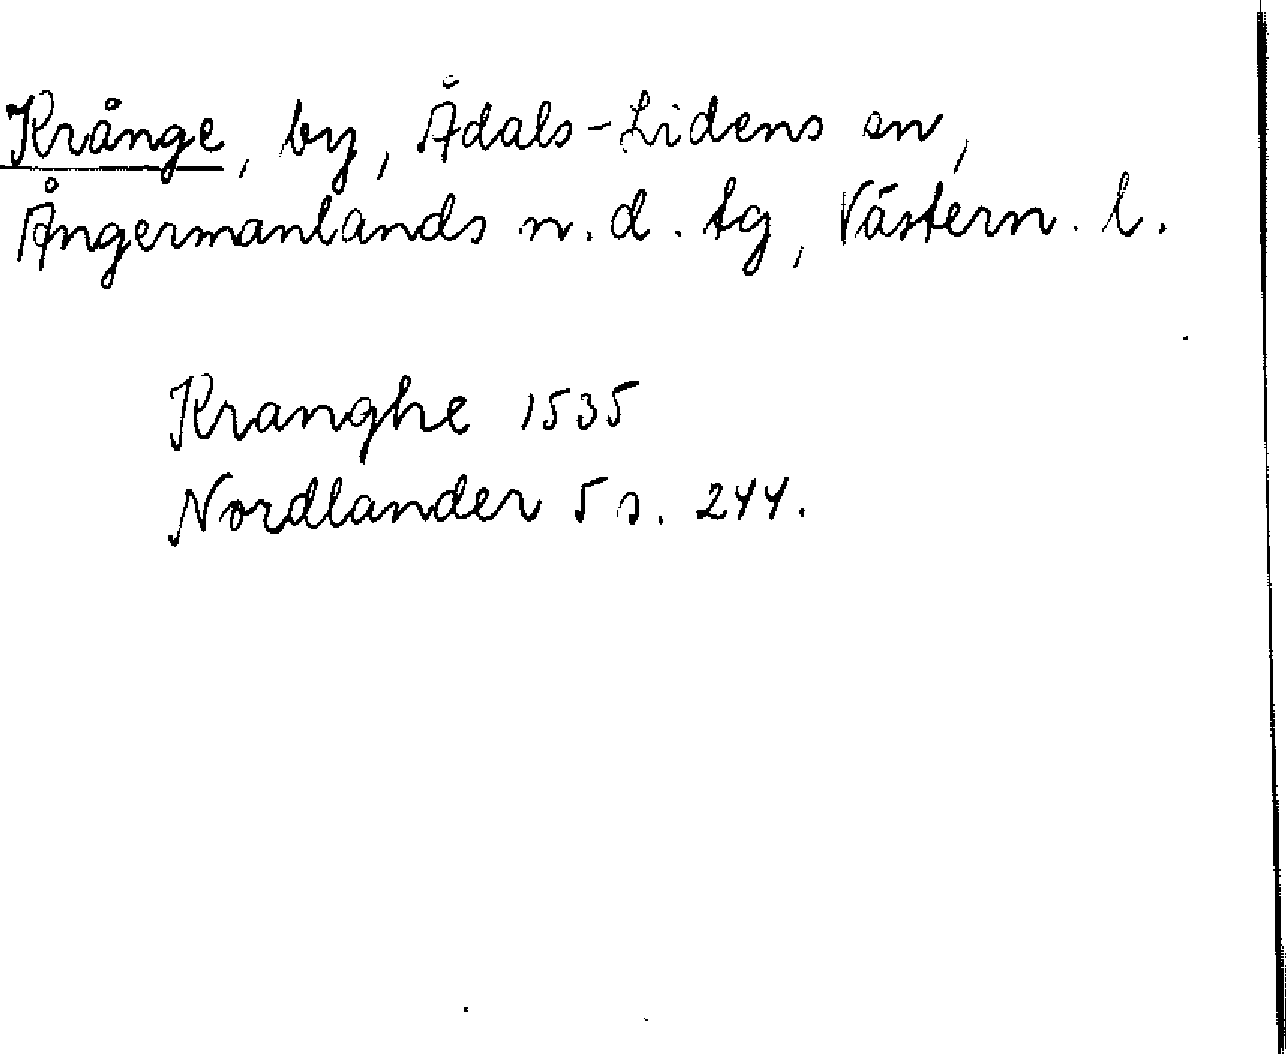 Krånge, by, Ådals-Lidens sn,
Ångermanlands n.d. tg, Västern. l.
Kranghe 1535
Nordlander 5 s. 244.